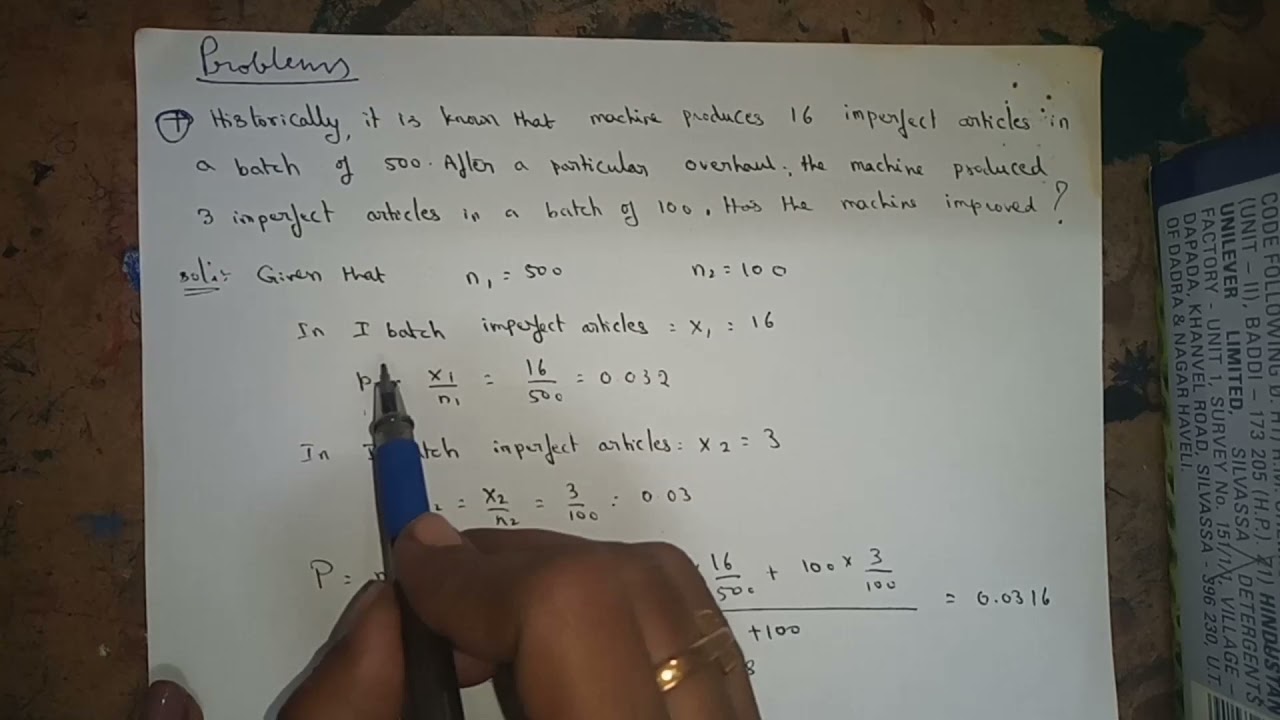 Problems
7 Historically, it is known that machine produces 16 imperfect articles in
a batch of 500. After a particular overhaul, the machine produced
3 imperfect articles in a batch of 100. Has the machine improved?
Sol:- Given that n₁ = 500 n₂ = 100
In I batch imperfect articles = x₁ = 16
p x₁/n₁ = 16/500 = 0.032
In imperfect articles = x₂ = 3
₂ = x₂/n₂ = 3/100 = 0.03
P = 16/500 + 100 × 3/100 = 0.0316
+100
8
CODE FOLLOWING
(UNIT - II), BADDI - 173 205 (H.P.).
UNILEVER LIMITED, SILVASSA DETERGENTS
FACTORY - UNIT 1, SURVEY No. 151/1/1, VILLAGE -
DAPADA, KHANVEL ROAD, SILVASSA - 396 230, U.T.
OF DADRA & NAGAR HAVELI.